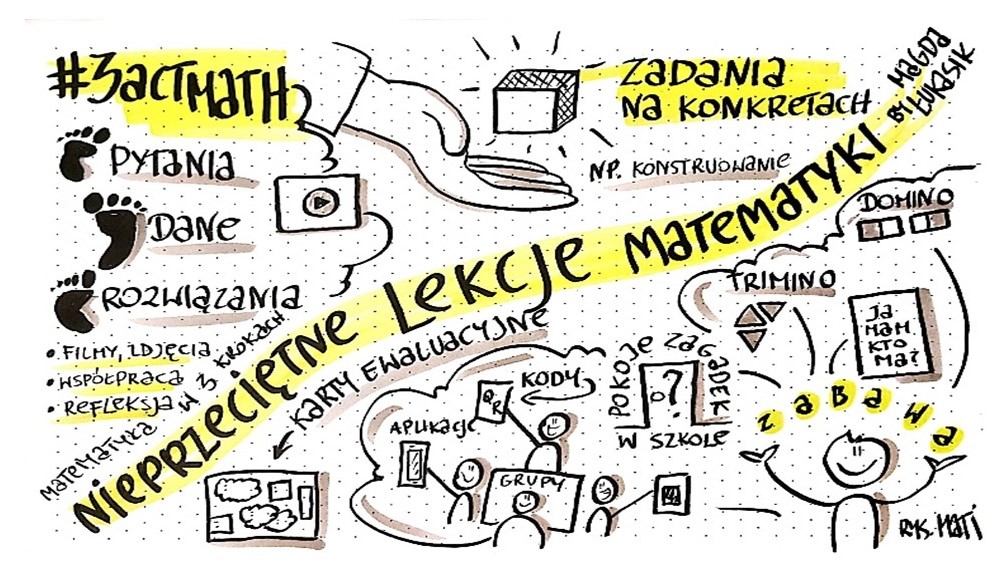 #3actmath
PYTANIA
DANE
ROZWIĄZANIA
• FILMY, ZDJĘCIA
• WSPÓŁPRACA
• REFLEKSJA
MATEMATYKA W 3 KROKACH
ZADANIA
NA KONKRETACH
NP. KONSTRUOWANIE
NIEPRZECIĘTNE LEKCJE MATEMATYKI
BY MAGDA
ŁUKASIK
KARTY EWALUACYJNE
APLIKACJE
KODY
QR
GRUPY
POKOJE ZAGADEK
?
W SZKOLE
DOMINO
TRIMINO
JA
MAM
KTO
MA?
ZABAWA
RYS. MATI